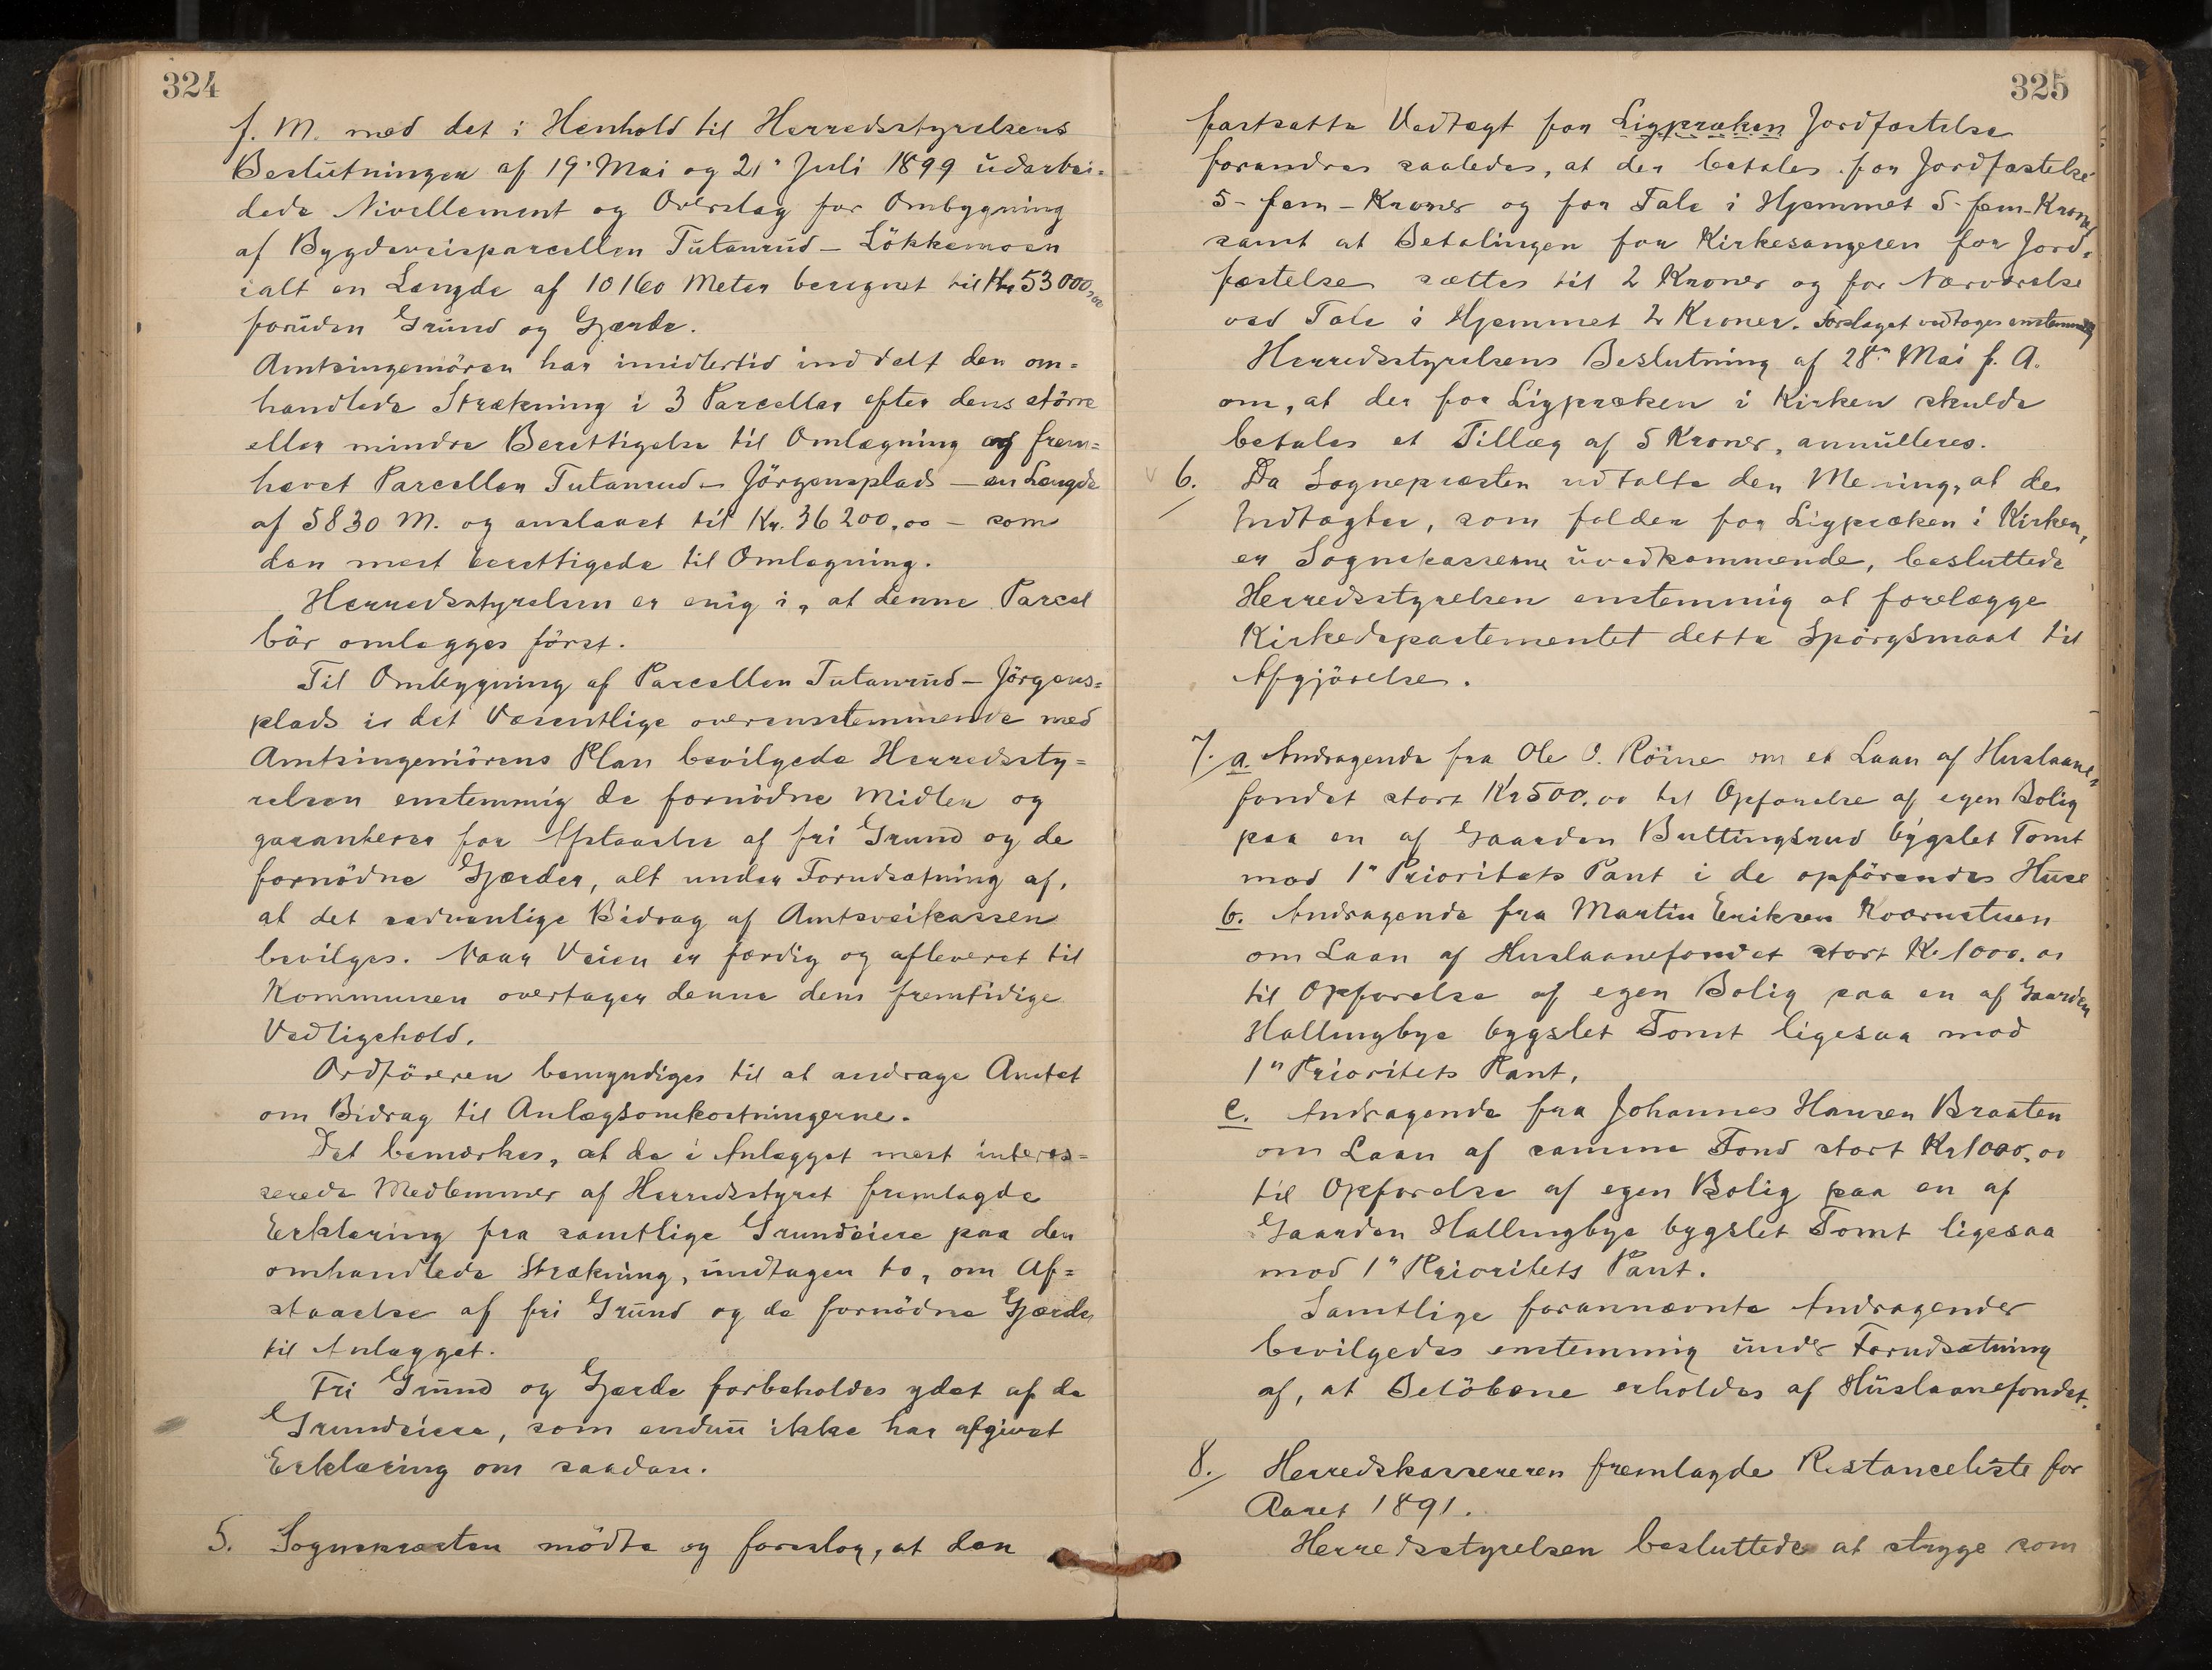 324
f. M. med det i Henhold til Herredsstyrelsens
Beslutninger af 19' Mai og 21' Juli 1899 udarbei-
dede Nivellement og Overslag for Ombygning
af Bygdeveisparcellen Tutanrud – Lökkemoen
ialt en Længde af 10160 Meter beregnet til Kr 53000,00
foruden Grund og Gjærde.
Amtsingeniören har imidlertid inddelt den om=
handlede Strækning i 3 Parceller efter dens större
eller mindre Berettigelse til Omlægning og frem=
hævet Parcellen Tutanrud – Jörgensplads – en Længde
af 5830 M. og anslaaet til Kr. 36200,00 – som
den mest berettigede til Omlægning.
Herredsstyrelsen er enig i, at denne Parcel
bör omlægges först.
Til Ombygning af Parcellen Tutanrud – Jörgens=
plads i det Væsentlige overensstemmende med
Amtsingeniörens Plan bevilgede Herredssty=
relsen enstemmig de fornödne Midler og
garanterer for Afstaaelse af fri Grund og de
fornödne Gjærder, alt under Forudsætning af,
at det sedvanlige Bidrag af Amtsveikassen
bevilges. Naar Veien er færdig og afleveret til
Kommunen overtager denne dens fremtidige
Vedligehold.
Ordföreren bemyndiges til at andrage Amtet
om Bidrag til Anlægsomkostningerne.
Det bemærkes, at de i Anlægget mest interes=
serede Medlemmer af Herredsstyret fremlagde
Erklæring fra samtlige Grundeiere paa den
omhandlede Strækning, undtagen to, om Af=
staaelse af fri Grund og de fornödne Gjærde,
til Anlægget.
Fri Grund og Gjærde forbeholdes ydet af de
Grundeiere, som endnu ikke har afgivet
Erklæring om saadan.
5. Sognepresten mödte og foreslog, at den
325
fastsatte Vedtægt for Ligpræken Jordfæstelse
forandres saaledes, at der betales for Jordfæstelse
5 - fem - Kroner og for Tale i Hjemmet 5 - fem - Kroner
samt at Betalingen for Kirkesangeren for Jord=
fæstelse sættes til 2 Kroner og for Nærværelse
ved Tale i Hjemmet 2 Kroner. Forslaget vedtoges enstemmig
Herredsstyrelsens Beslutning af 28de Mai f. A.
om, at der for Ligpræken i Kirken skulde
betales et Tillæg af 5 Kroner, annulleres.
6. Da Sognepræsten udtalte den Mening, at de
Indtægter, som falder for Ligpræken i Kirken,
er Sognekasserne uvedkommende, besluttede
Herredsstyrelsen enstemmig at forelægge
Kirkedepartementet dette Spörgsmaal til
Afgjörelse.
7. a. Andragende fra Ole O. Röine om et Laan af Huslaane=
fondet stort Kr 500,00 til Opförelse af egen Bolig
paa en af Gaarden Buttingsrud bygslet Tomt
mod 1" Prioritets Pant i de opförendes Huse
b. Andragende fra Martin Eriksen Kværnstuen
om Laan af Huslaanefondet stort Kr 1000.00
til Opförelse af egen Bolig paa en af Gaarden
Hallingbye bygslet Tomt ligesaa mod
1" Prioritets Pant.
c. Andragende fra Johannes Hansen Braaten
om Laan af samme Fond stort Kr 1000,00
til Opförelse af egen Bolig paa en af
Gaarden Hallingbye bygslet Tomt ligesaa
mod 1" Prioritets Pant.
Samtlige forannævnte Andragender
bevilgedes enstemmig under Forudsætning
af, at Belöbene erholdes af Huslaanefondet.
8. Herredskassereren fremlagde Restanceliste for
Aaret 1891.
Herredsstyrelsen besluttede at stryge som